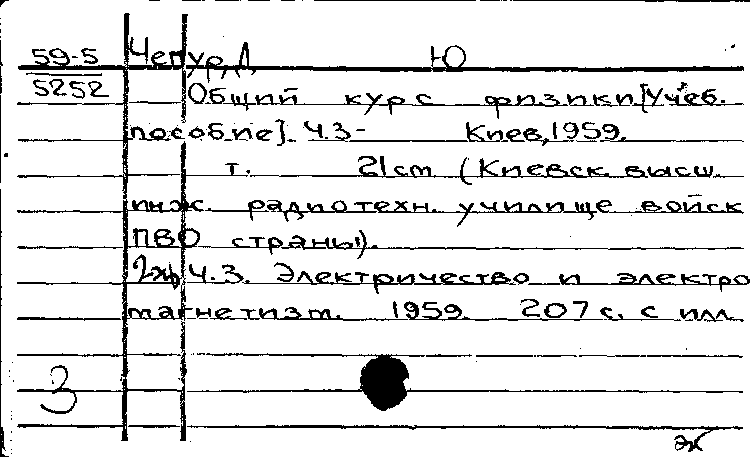 59-5 Чепур, Д. Ю
5252 Общий курс физики [Учеб.
пособие]. Ч.3- Киев, 1959.
т. 21 см (Киевск. высш.
инж. радиотехн. училище войск
ПВО страны).
Ч.3. Электричество и электро
магнетизм. 1959. 207 с. с илл.
3